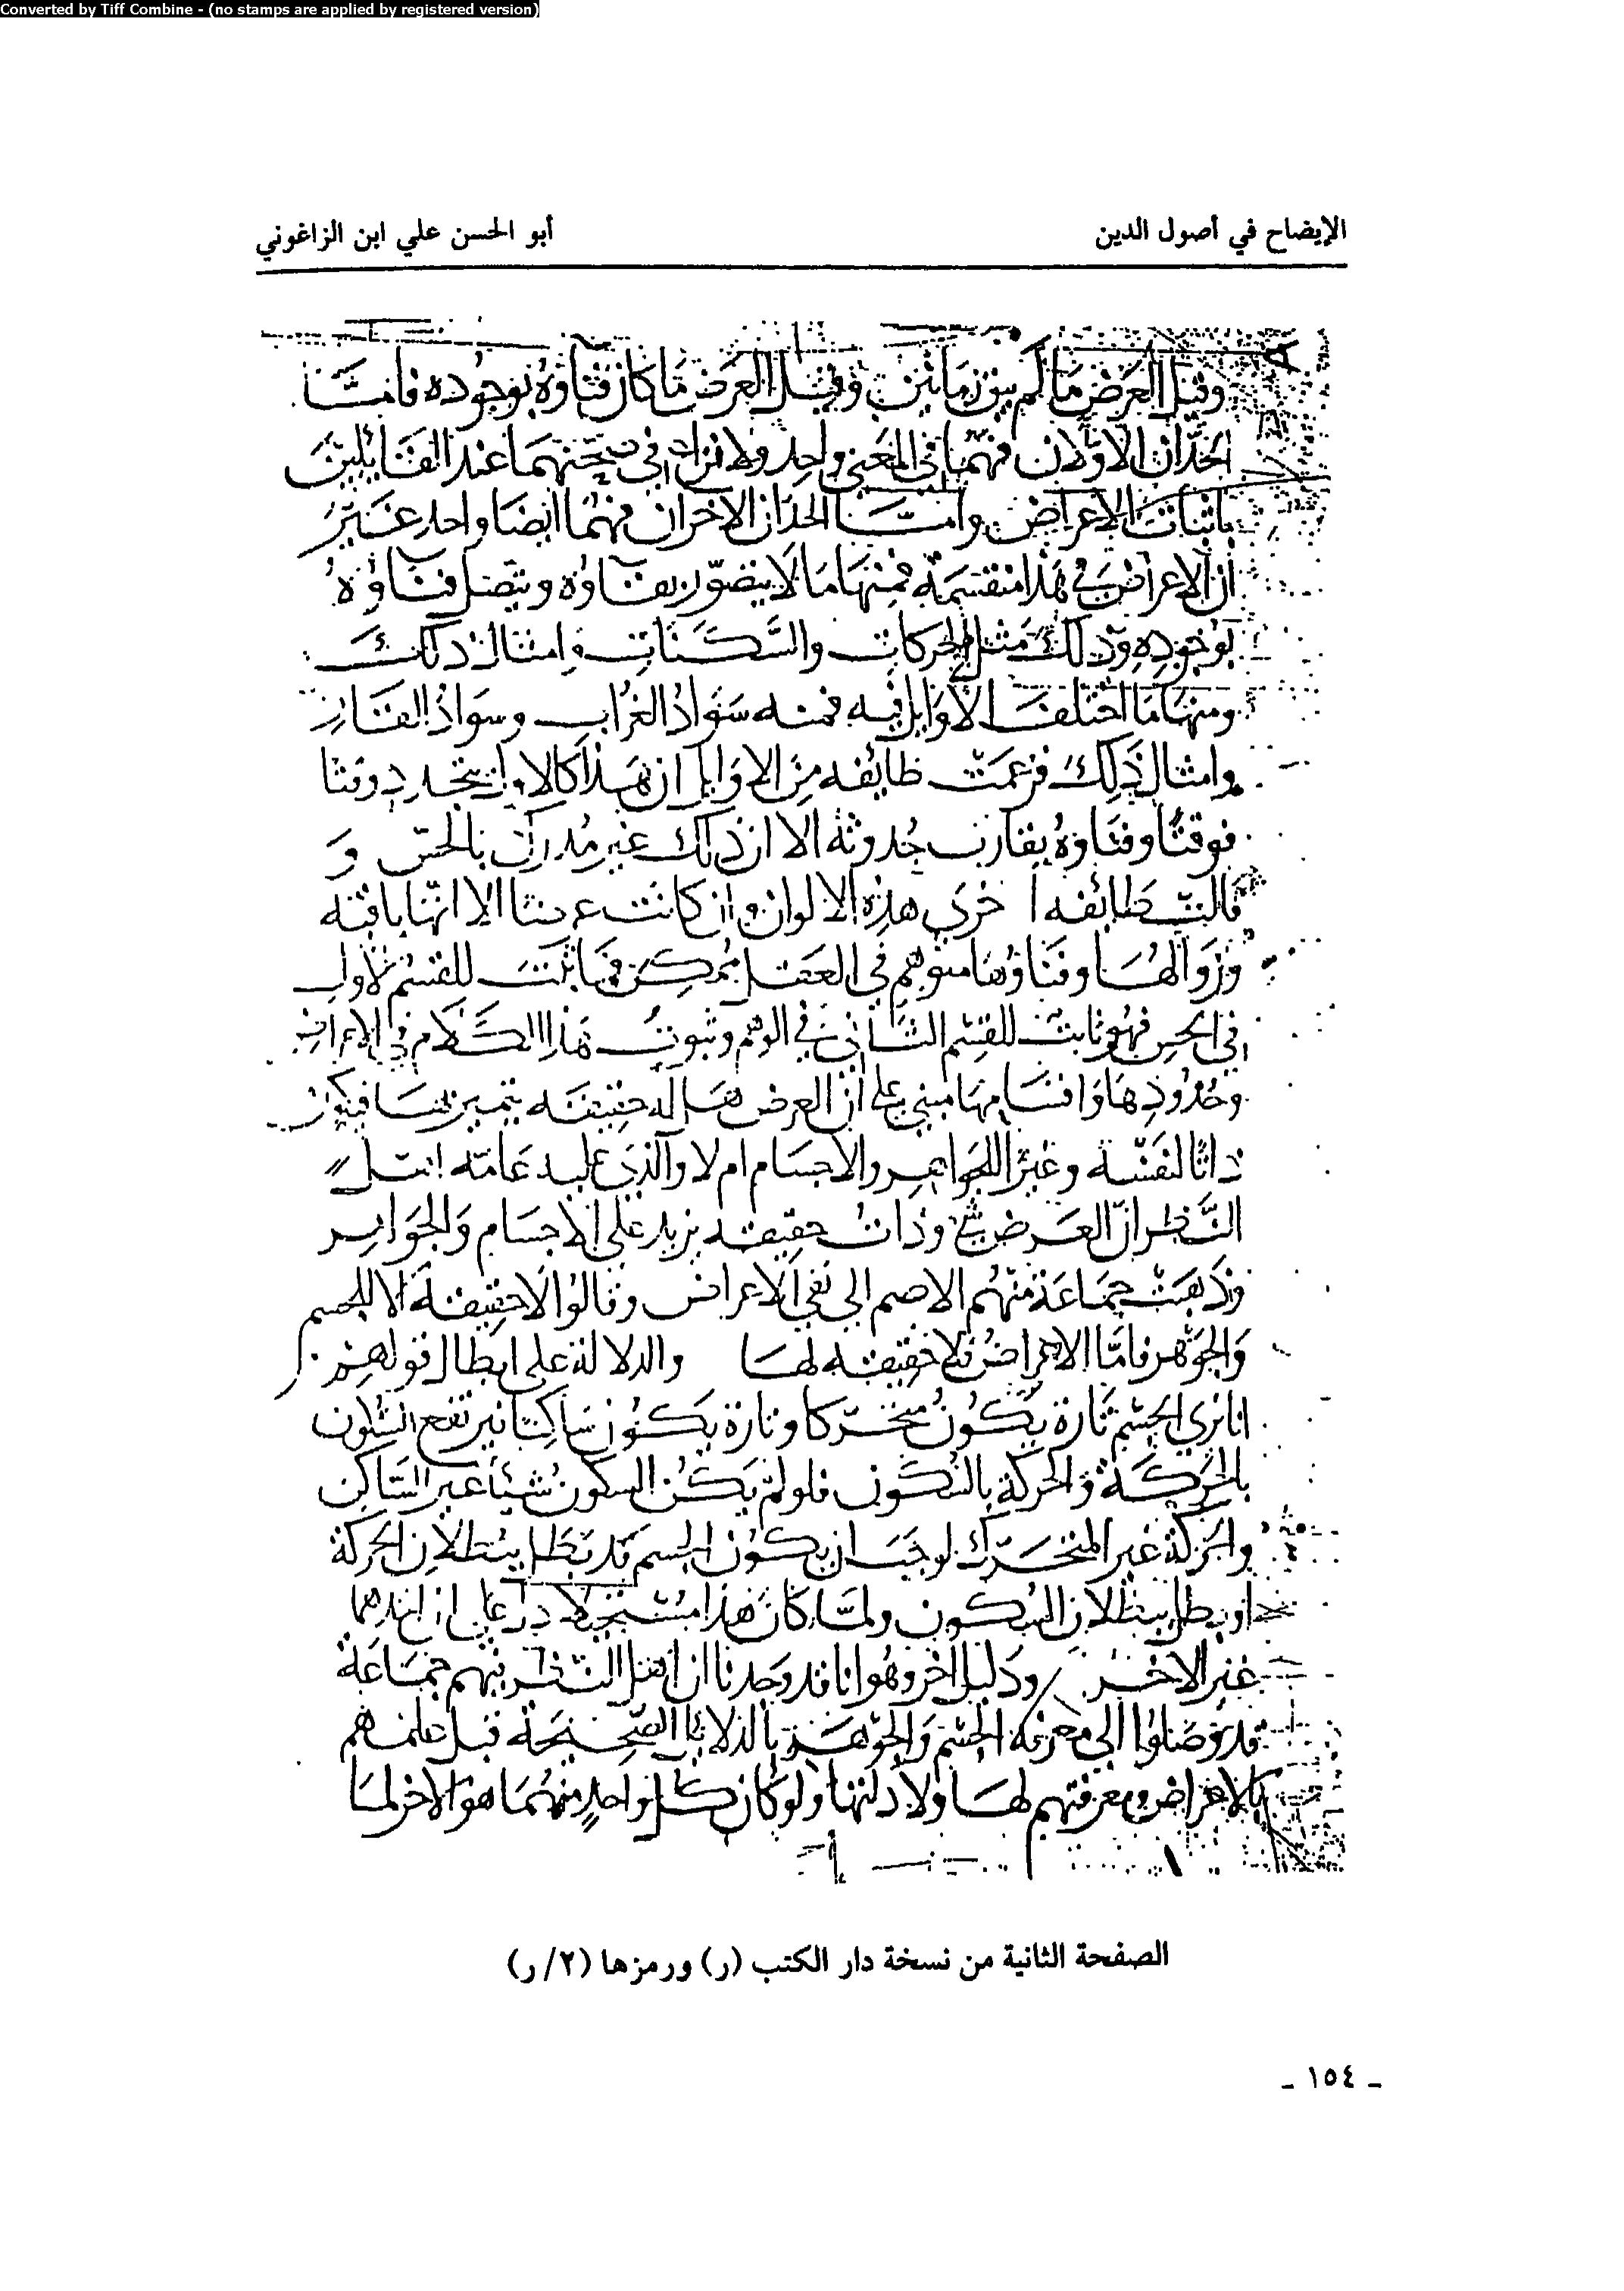 Converted by Tiff Combine - (no stamps are applied by registered version)
الإيضاح في أصول الدين
أبو الحسن علي ابن الزاغوني
وقيل العرض ما لم يبق زمانين وقيل العرض ما كان فناؤه بوجوده فامّا
الحدّان الاوّلان فهما في المعنى واحد ولا نزاع في صحتهما عند القايلين
باثبات الاعراض وامّا الحدان الاخران فهما ايضا واحد غير
ان الاعراض في هذا منقسمة فمنها ما لا يتصوّر بقاؤه ويتصل فناؤه
بوجوده وذلك مثل الحركات والسكنات وامثال ذلك
ومنها ما اختلف الاوايل فيه فمنه سواد الغراب وسواد القار
وامثال ذلك فزعمت طايفه من الاوايل ان هذا كالاول يتجدد وقتا
فوقتا وفناوه يقارب حدوثه الا ان ذلك غير مدرك بالحس و
قالت طائفه اخرى هذه الالوان وان كانت عرضا الا انها باقيه
وزوالها وفناؤها متوهم في العقل ممكن فما ثبت للقسم الاول
في الحس فهو ثابت للقسم الثاني في الوهم وثبوت هذا الكلام في الاعراض
وحدودها واقسامها مبني على ان العرض هل له حقيقه يتميز بها فيكون
ذاتا لنفسه وغير الجواهر والاجسام ام لا والذي عليه عامة اهل
النظر انّ العرض شي وذات حقيقه يزيد على الاجسام والجواهر
وذهبت جماعة منهم الاصم الى نفي الاعراض وقالوا لا حقيقة الا للجسم
والجوهر فامّا الاعراض فلا حقيقه لها والدلالة على ابطال قولهم
انا نرى الجسم تارة يكون متحرّكا وتارة يكون ساكنا فيرتفع السكون
بالحركة والحركة بالسكون فلو لم يكن السكون شيئا غير الساكن
والحركة غير المتحرّك لوجب ان يكون الجسم قد بطل ببطلان الحركة
او يبطل ببطلان السكون ولمّا كان هذا مستحيلا دل على ان احدهما
غير الاخر ودليل اخر وهو انا قد وجدنا ان اهل النظر فيهم جماعة
قد توصلوا الى معرفة الجسم والجوهر بالدلايل الصحيحة قبل علمهم
بالاعراض ومعرفتهم لها ولادلتها ولو كان كل واحد منهما هو الاخر لما
الصفحة الثانية من نسخة دار الكتب (ر) ورمزها (٢/ر)
- ١٥٤ -